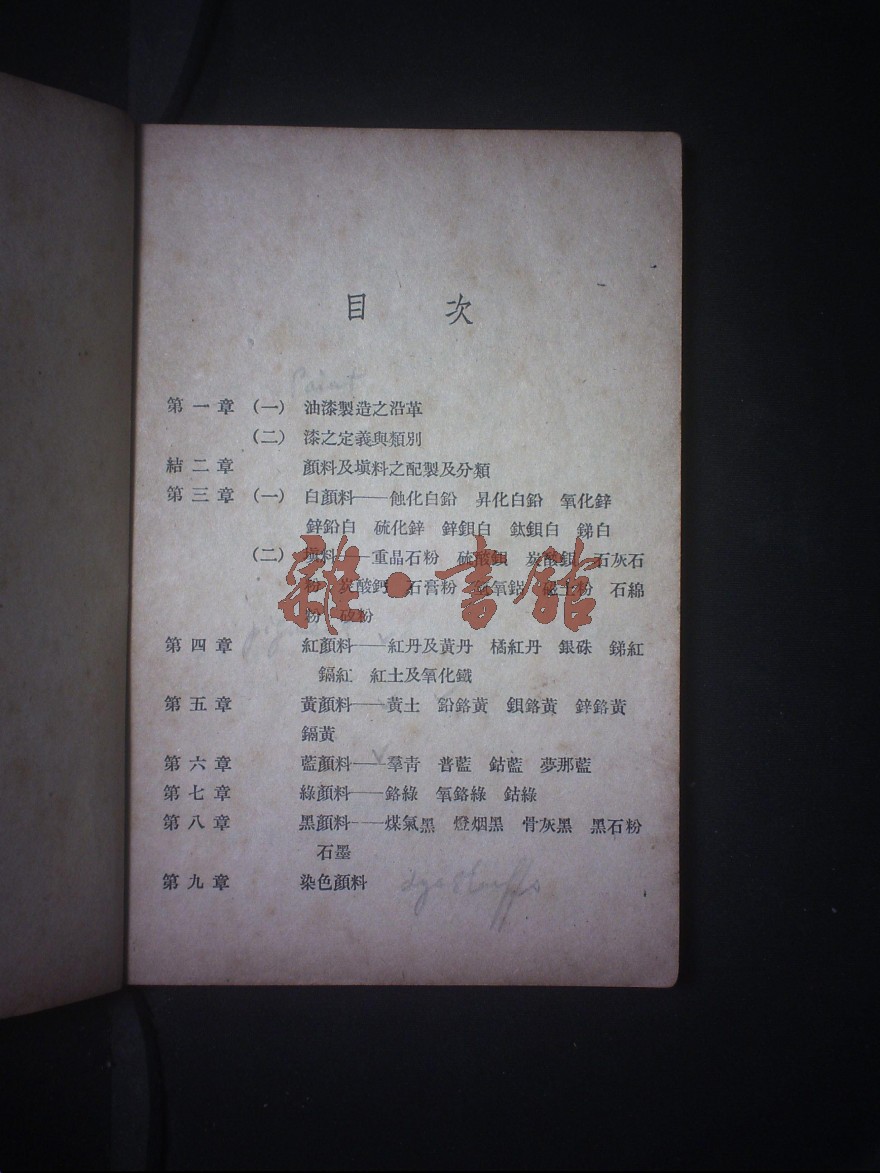 目 次
Paint
第一章 (一) 油漆製造之沿革
(二) 漆之定義與類別
結二章 顏料及塡料之配製及分類
第三章 (一) 白顏料——蝕化白鉛 昇化白鉛 氧化鋅
鋅鉛白 硫化鋅 鋅鋇白 鈦鋇白 銻白
(二) 塡料——重晶石粉 硫酸鋇 炭酸鋇 石灰石
粉 炭酸鈣 石膏粉 土粉 石綿
粉 矽粉
雜·書館
第四章 紅顏料——紅丹及黃丹 橘紅丹 銀硃 銻紅
鎘紅 紅土及氧化鐵
第五章 黃顏料——黃土 鉛鉻黃 鋇鉻黃 鋅鉻黃
鎘黃
第六章 藍顏料——羣青 普藍 鈷藍 夢那藍
第七章 綠顏料——鉻綠 氧鉻綠 鈷綠
第八章 黑顏料——煤氣黑 燈烟黑 骨灰黑 黑石粉
石墨
第九章 染色顏料 dye stuffs